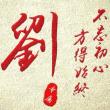 劉
不忘初心
方得始終